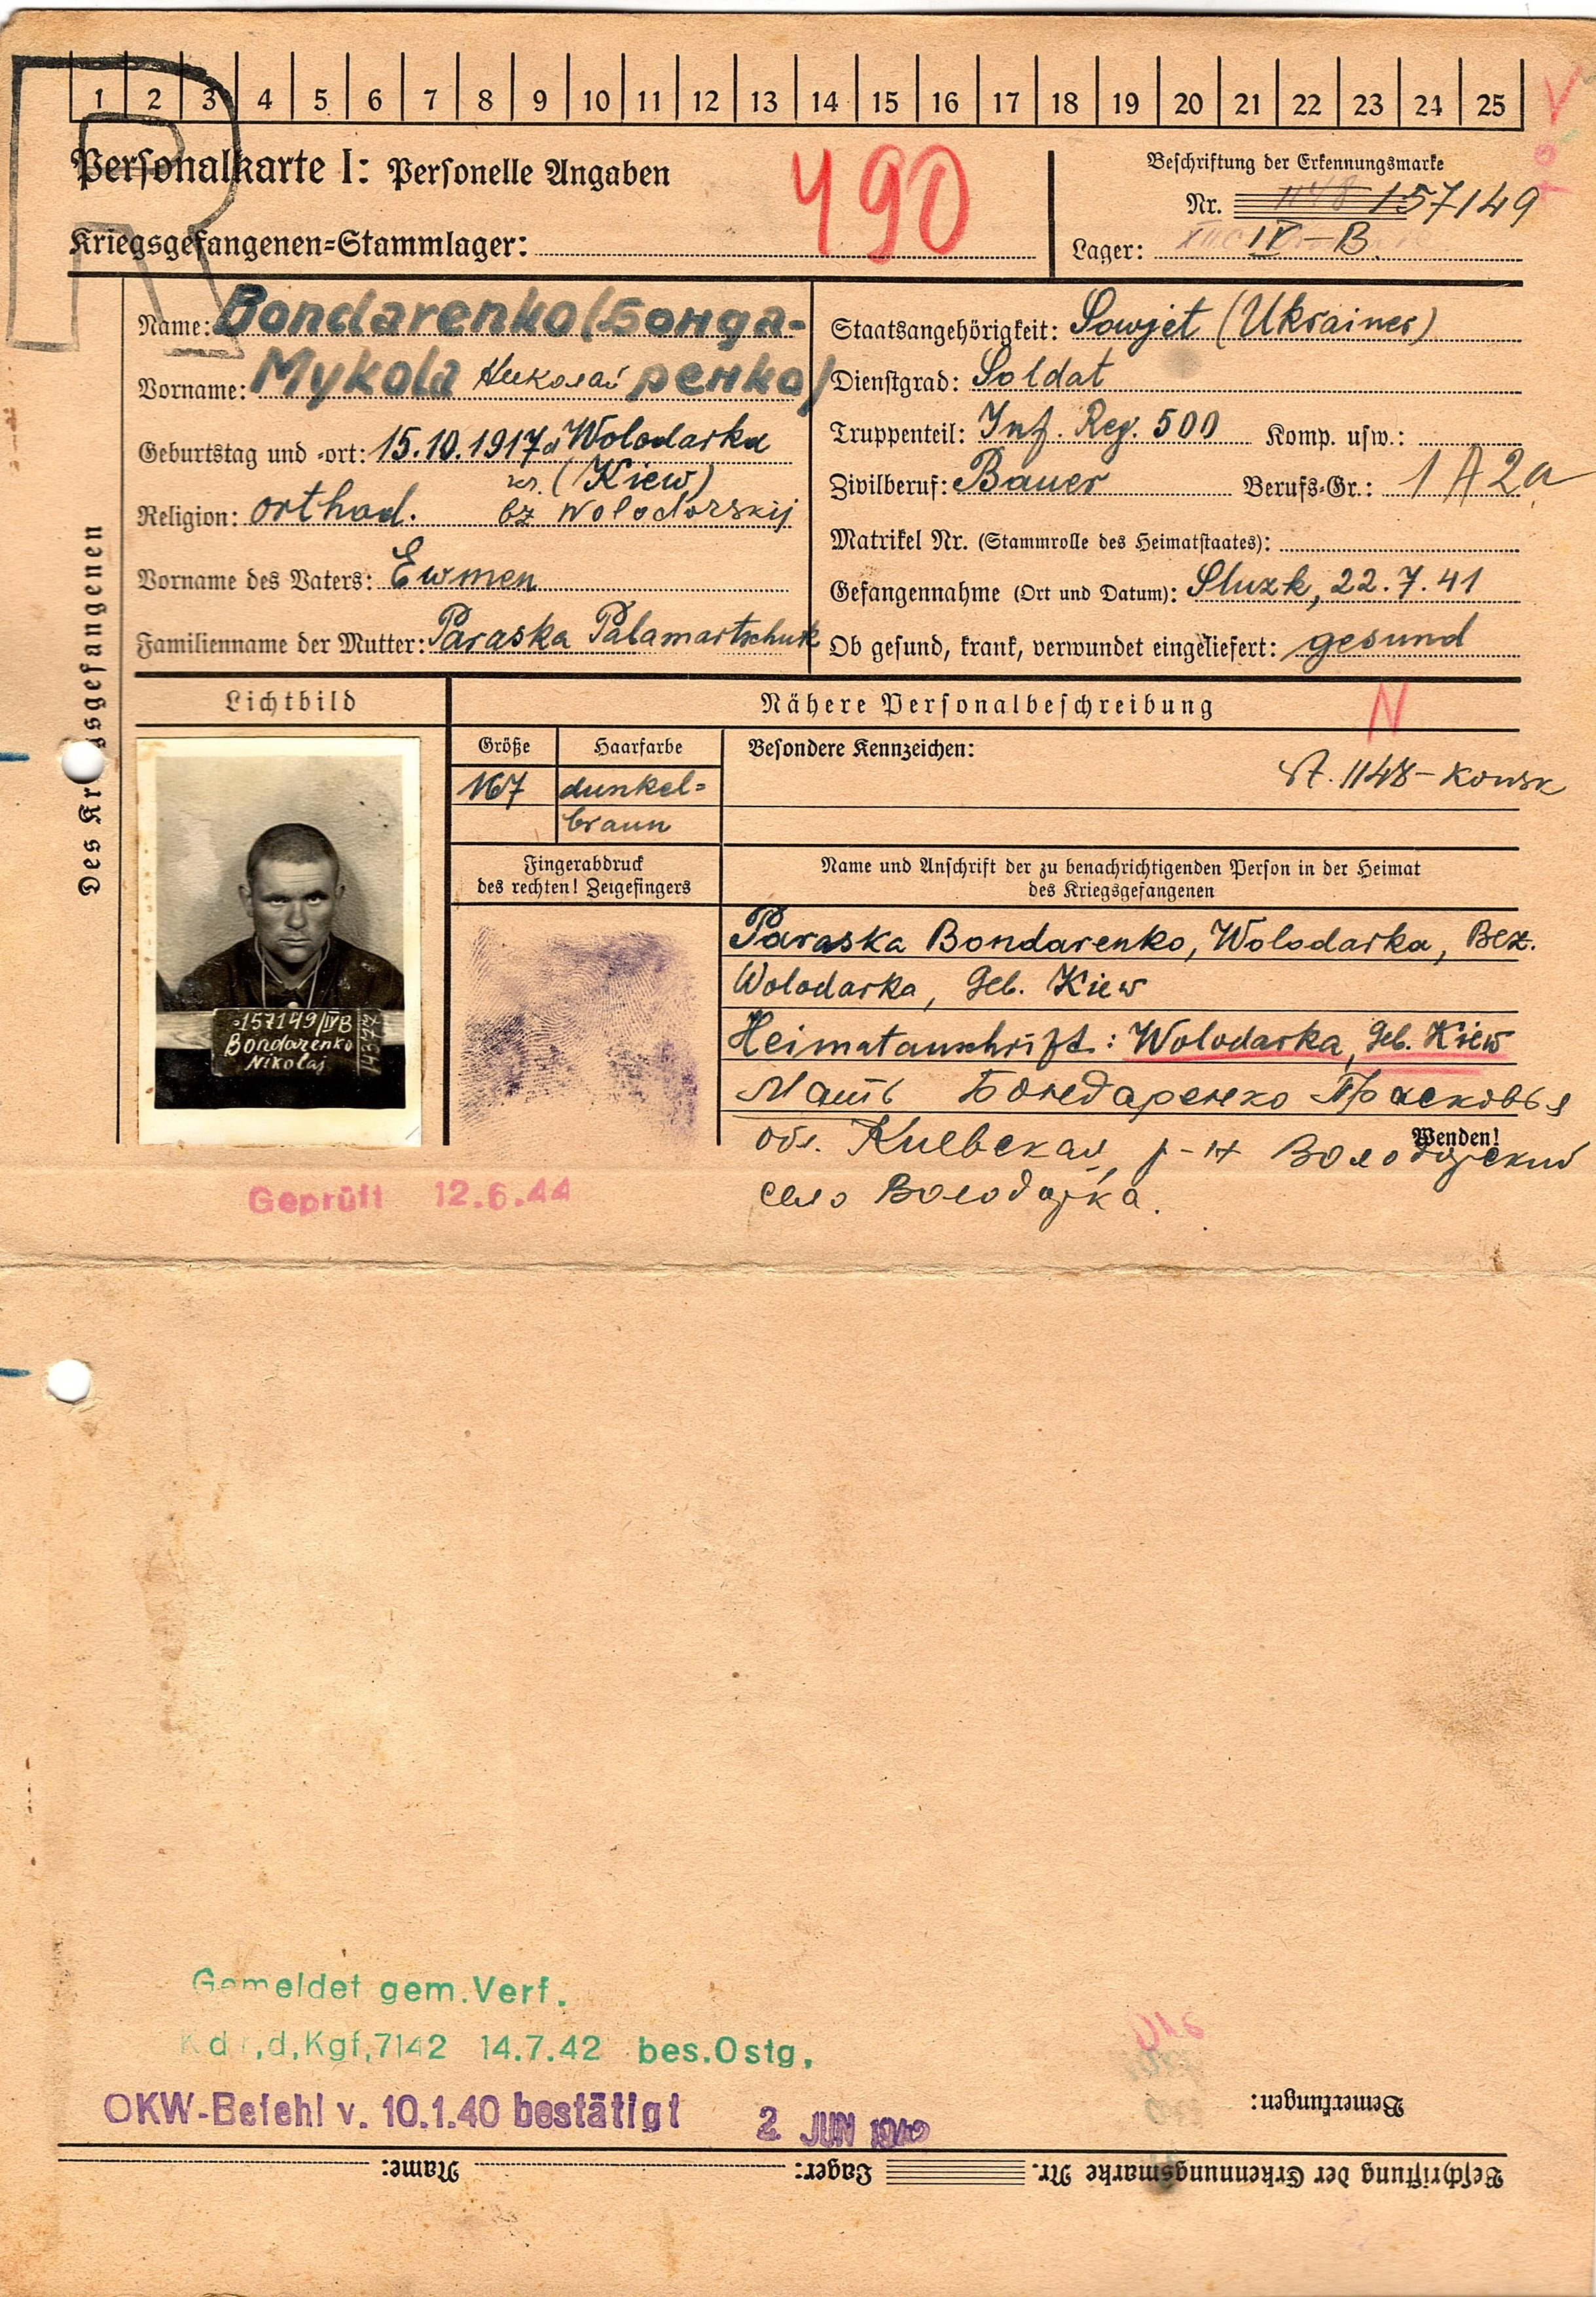 1 2 3 4 5 6 7 8 9 10 11 12 13 14 15 16 17 18 19 20 21 22 23 24 25
R
Personalkarte I: Personelle Angaben
490
Beschriftung der Erkennungsmarke
Nr. 1148 157149
Kriegsgefangenen=Stammlager:
Lager: IV-B.
Des Kr sgefangenen
Name: Bondarenko (Бонда-
Vorname: Mykola Николай ренко)
Geburtstag und =ort: 15.10.1917 Wolodarka
(Kiew)
Religion: orthod. bz Wolodarskij
Vorname des Vaters: Ewmen
Familienname der Mutter: Paraska Palamartschuk
Staatsangehörigkeit: Sowjet (Ukrainer)
Dienstgrad: Soldat
Truppenteil: Inf. Reg. 500 Komp. usw.:
Zivilberuf: Bauer Berufs=Gr.: 1 A 2a
Matrikel Nr. (Stammrolle des Heimatstaates):
Gefangennahme (Ort und Datum): Sluzk, 22.7.41
Ob gesund, krank, verwundet eingeliefert: gesund
Lichtbild
Nähere Personalbeschreibung
N
Größe Haarfarbe
167 dunkel=
braun
Besondere Kennzeichen:
St. 1148-Konsk
Fingerabdruck
des rechten! Zeigefingers
Name und Anschrift der zu benachrichtigenden Person in der Heimat
des Kriegsgefangenen
157149/IVB
Bondarenko
Nikolaj
Paraska Bondarenko, Wolodarka, Bez.
Wolodarka, Geb. Kiew
Heimatanschrift: Wolodarka, Geb. Kiew
Мать Бондаренко Прасковья
обл. Киевская, р-н Володарский
село Володарка.
Wenden!
Geprüft 12.6.44
Gemeldet gem.Verf.
Kdr,d,Kgf,7142 14.7.42 bes.Ostg,
OKW-Befehl v. 10.1.40 bestätigt 2. JUN
Bemerkungen:
Beschriftung der Erkennungsmarke Nr. Lager: Name: